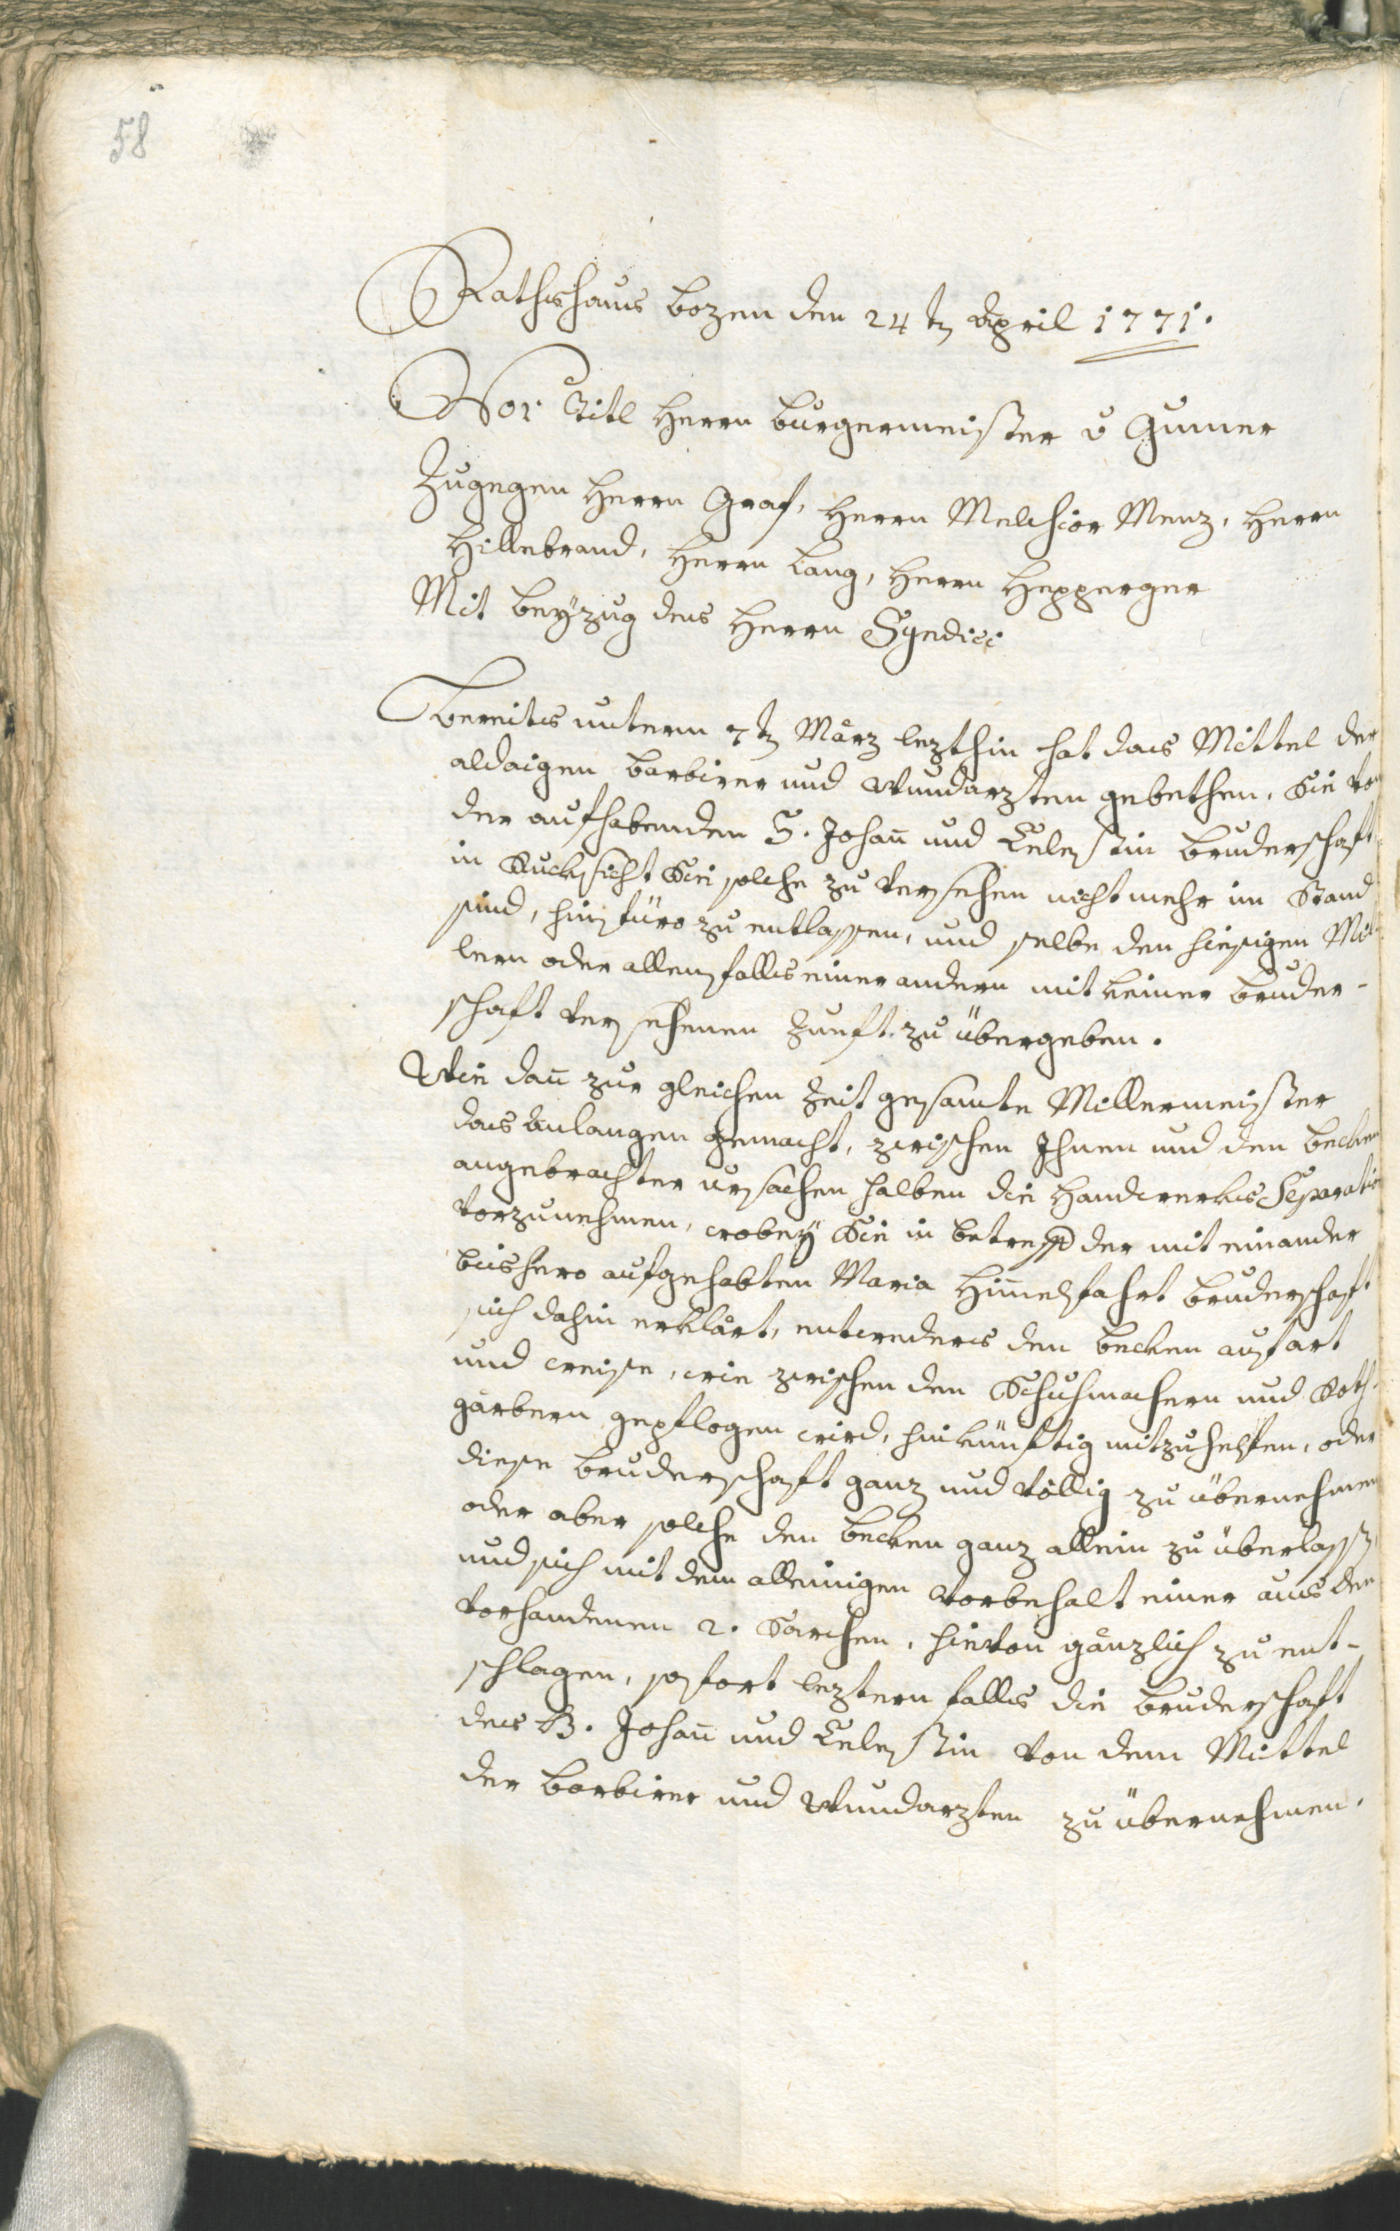 58
Rathshaus Bozen den 24 tn April 1771.
Vor Titl Herrn Burgermeister v Gumer
Zugegen Herrn Graf, Herrn Melchior Menz, Herrn
Hillebrand, Herrn Lang, Herrn Hepperger
Mit Beÿzug des Herrn Syndici
Bereits unterm 7 tn März lezthin hat das Mittel der
aldaigen Barbirer und Wundarzten gebethen, Sie von
der aufhabenden S. Johañ und Celestin Bruderschaft,
in Rucksicht Sie solche zu versehen nicht mehr im Stand
sind, hinfüro zu entlassen, und selbe den hiesigen Mil-
lern oder allenfalls einer andern mit keiner Bruder-
schaft versehenen Zunft zu übergeben.
Wie dañ zur gleichen Zeit gesamte Millermeister
das Anlangen gemacht, zwischen Ihnen und den Becken
angebrachter ursachen halben die Handwerks Separation
vorzunehmen, wobeÿ Sie in betreff der mit einander
bishero aufgehabten Maria Himelfahrt Bruderschaft
sich dahin erklärt, entweders den Becken auf art
und weise, wie zwischen den Schuhmachern und Roth-
gärbern gepflogen wird, hinkünftig mitzuhelfen, oder
diese Bruderschaft ganz und völlig zu übernehmen
oder aber solche den Becken ganz allein zu überlassen,
und sich mit dem alleinigen Vorbehalt einer aus den
vorhandenen 2. Sarchen, hievon gänzlich zu ent-
schlagen, sofort leztern falls die Bruderschaft
des B. Johañ und Celestin von dem Mittel
der Barbirer und Wundarzten zu übernehmen.